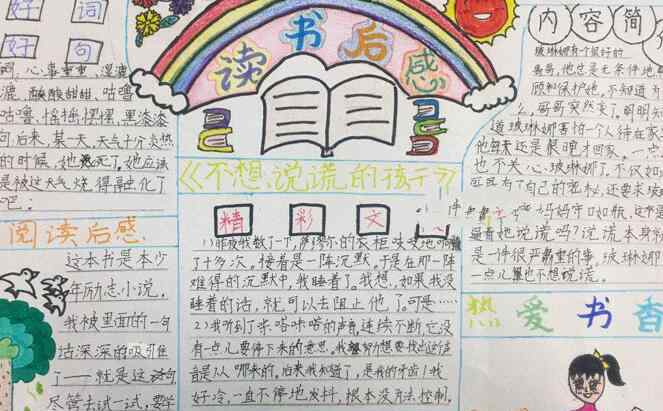 好 词
好 句
读书后感
内容简
词,心事重重、湿漉
漉,酸酸甜甜、咕噜
咕噜、摇摇摆摆、黑漆漆
句:后来,某一天,天气十个炎热
的时候,她死了。她应该
是被这天气烧得融化了
吧!
阅读后感
这本书是本少
年励志小说。
我被里面的一句
话深深的吸引住
了——就是这句
尽管去试一试,
《不想说谎的孩子》
精 彩 文
1)昨夜我数了一下,萨穆尔的衣柜吱吱地响
了十多次。接着是一阵沉默,于是在那一阵
难得的沉默中,我睡着了。我想,如果我没
睡着的话,就可以去阻止他了。可是……
2)我听到了咔嗒咔嗒的声音,连续不断,它没
有一点儿要停下来的意思。我努力想要找出这声
音是从哪来的,后来我知道了,是我的牙齿!我
好冷,一直不停地发抖,根本没方法控制。
玻琳娜有个很好的
哥哥,他总是无条件地
顾和保护她,不知道为
么,哥哥突然变了,明明知
道玻琳娜害怕一个人待在家
他每天还是很晚才回家。一点
也不关心玻琳娜了,不仅如
而且有了自己的秘密,还要求玻
妈妈守口如瓶,这不
着她说谎吗?说谎本身就
是一件很严肃的事,玻琳娜
一点儿算也不想说谎。
热爱书香